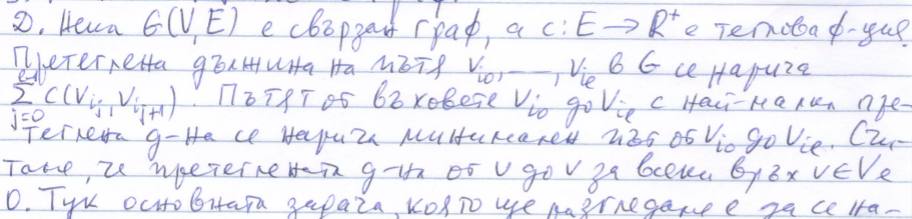 D. Нека G(V,E) е свързан граф, а c: E → R⁺ е теглова ф-ция.
Претеглена дължина на пътя v_{i_0}, —, v_{i_l} в G се нарича
\sum_{j=0}^{l-1} c(v_{i_j}, v_{i_{j+1}}). Пътят от върховете v_{i_0} до v_{i_l} с най-малка пре-
теглена д-на се нарича минимален път от v_{i_0} до v_{i_l}. Счи-
таме, че претеглената д-на от v до v за всеки връх v∈V е
0. Тук основната задача, която ще разгледаме е да се на-